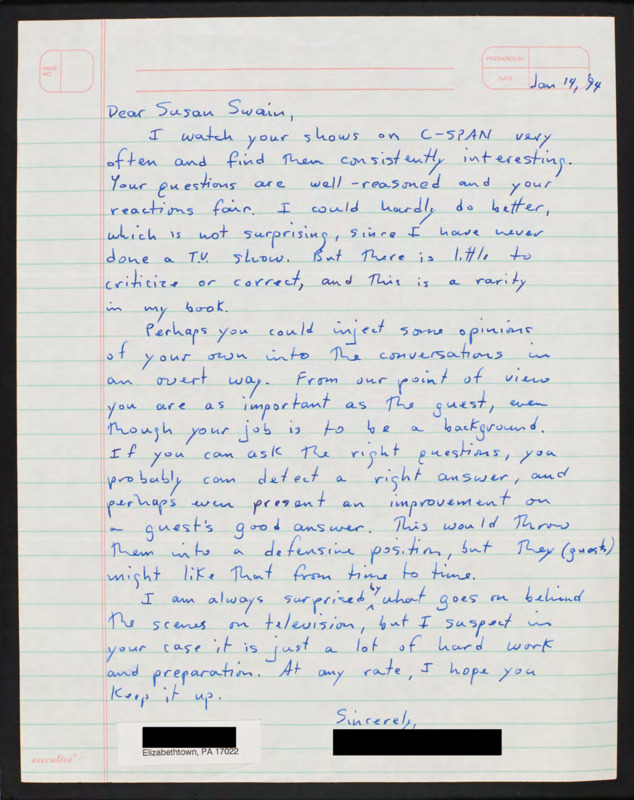 PAGE
NO
PREPARED BY
DATE
Jan 14, '94
Dear Susan Swain,
I watch your shows on C-SPAN very
often and find them consistently interesting.
Your questions are well-reasoned and your
reactions fair. I could hardly do better,
which is not surprising, since I have never
done a T.V. show. But there is little to
criticize or correct, and this is a rarity
in my book.
Perhaps you could inject some opinions
of your own into the conversations in
an overt way. From our point of view
you are as important as the guest, even
though your job is to be a background.
If you can ask the right questions, you
probably can detect a right answer, and
perhaps even present an improvement on
a guest's good answer. This would throw
them into a defensive position, but they (guests)
might like that from time to time.
I am always surprised by what goes on behind
the scenes on television, but I suspect in
your case it is just a lot of hard work
and preparation. At any rate, I hope you
keep it up.
Sincerely,
Elizabethtown, PA 17022
executive